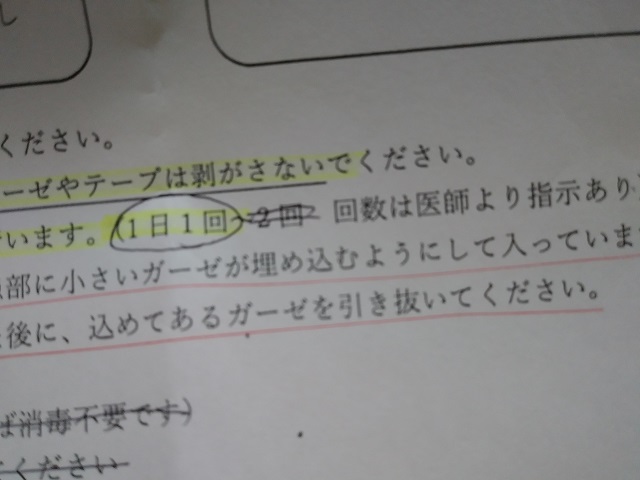 ください。
ーゼやテープは剥がさないでください。
います。1日1回~2回 回数は医師より指示あり
部に小さいガーゼが埋め込むようにして入っていま
後に、込めてあるガーゼを引き抜いてください。
ば消毒不要です）
ください